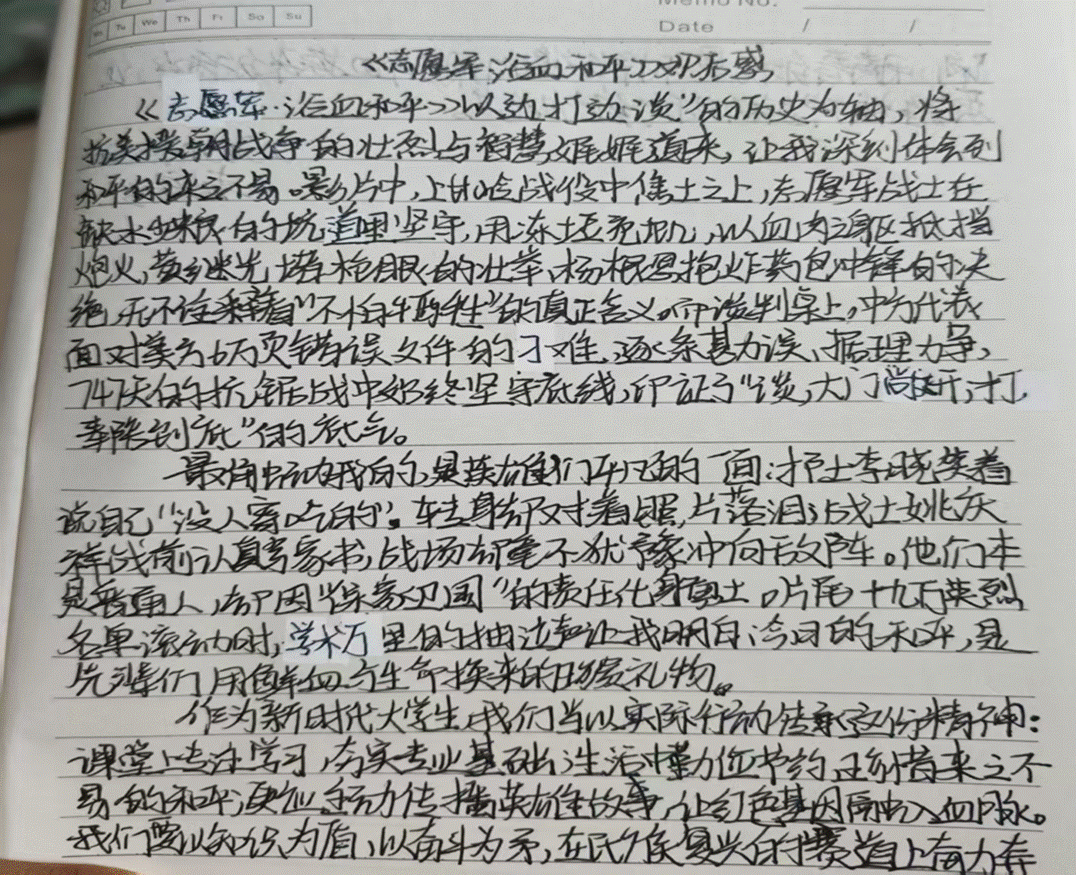 Memo No.
Mo Tu We Th Fr Sa Su
Date / /
《志愿军:浴血和平》观后感
《志愿军:浴血和平》以边打边谈"的历史为轴,将
抗美援朝战争的壮烈与智慧娓娓道来,让我深刻体会到
和平的来之不易。影片中,上甘岭战役中焦土之上,志愿军战士在
缺水缺粮的坑道里坚守,用冻土充饥,以血肉之躯抵挡
炮火,黄继光堵枪眼的壮举、杨根思抱炸药包冲锋的决
绝,无不诠释着"不怕牺牲"的真正含义。而谈判桌上,中方代表
面对美方6万页错误文件的刁难,逐条勘误、据理力争,
747天的拉锯战中始终坚守底线,印证了"谈,大门尚开,打,
奉陪到底"的底气。
最触动我的,是英雄们平凡的一面:护士李晓笑着
说自己"没人寄吃的",转身却对着照片落泪;战士姚庆
祥战前认真写家书,战场却毫不犹豫冲向敌阵。他们本
是普通人,却因"保家卫国"的责任化身勇士。片尾十九万英烈
名单滚动时,学术厅里的抽泣声让我明白:今日的和平,是
先辈们用鲜血与生命换来的珍贵礼物。
作为新时代大学生,我们当以实际行动传承这份精神:
课堂上专注学习,夯实专业基础;生活中勤俭节约,珍惜来之不
易的和平;更应主动传播英雄故事,让红色基因融入血脉。
我们要以知识为盾,以奋斗为矛,在民族复兴的赛道上奋力奔